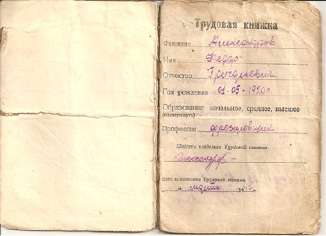 Трудовая книжка
Фамилия Александров
Имя Федор
Отчество Григорьевич
Год рождения
Образование: начальное, среднее, высшее
Профессия фрезеровщик
Подпись владельца Трудовой книжки
Дата заполнения Трудовой книжки